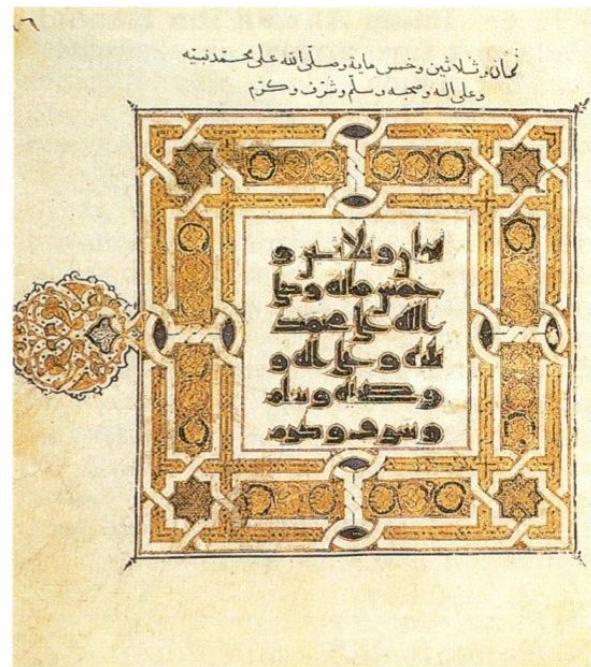 ثمان وثلاثين وخمس ماية وصلى الله على محمد نبيه
وعلى اله وصحبه وسلم وشرف وكرم
ثمان وثلاثين و
خمس مائه وصلى
الله على محمد
نبيه و على اله و
وصحبه وسلم
وشرف وكرم